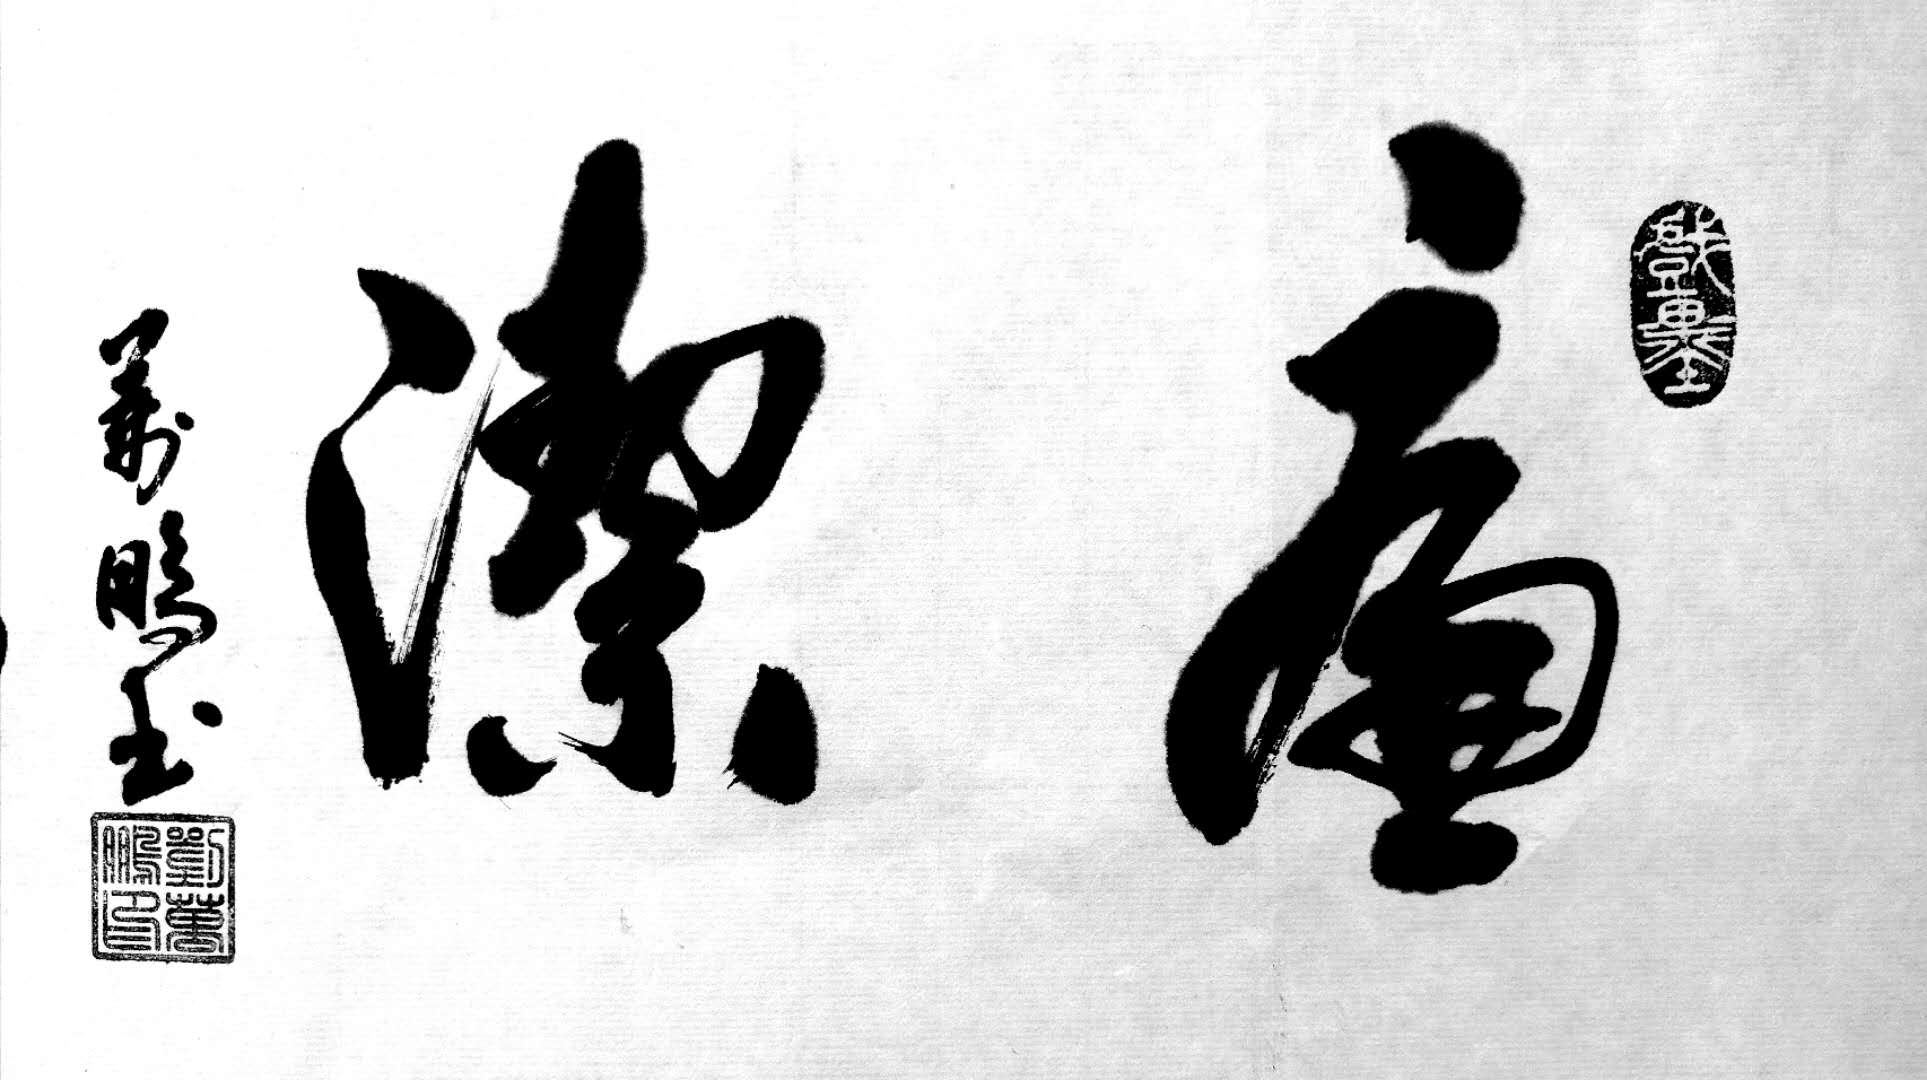 戲墨
廉潔
萬鵬书
劉萬鵬印